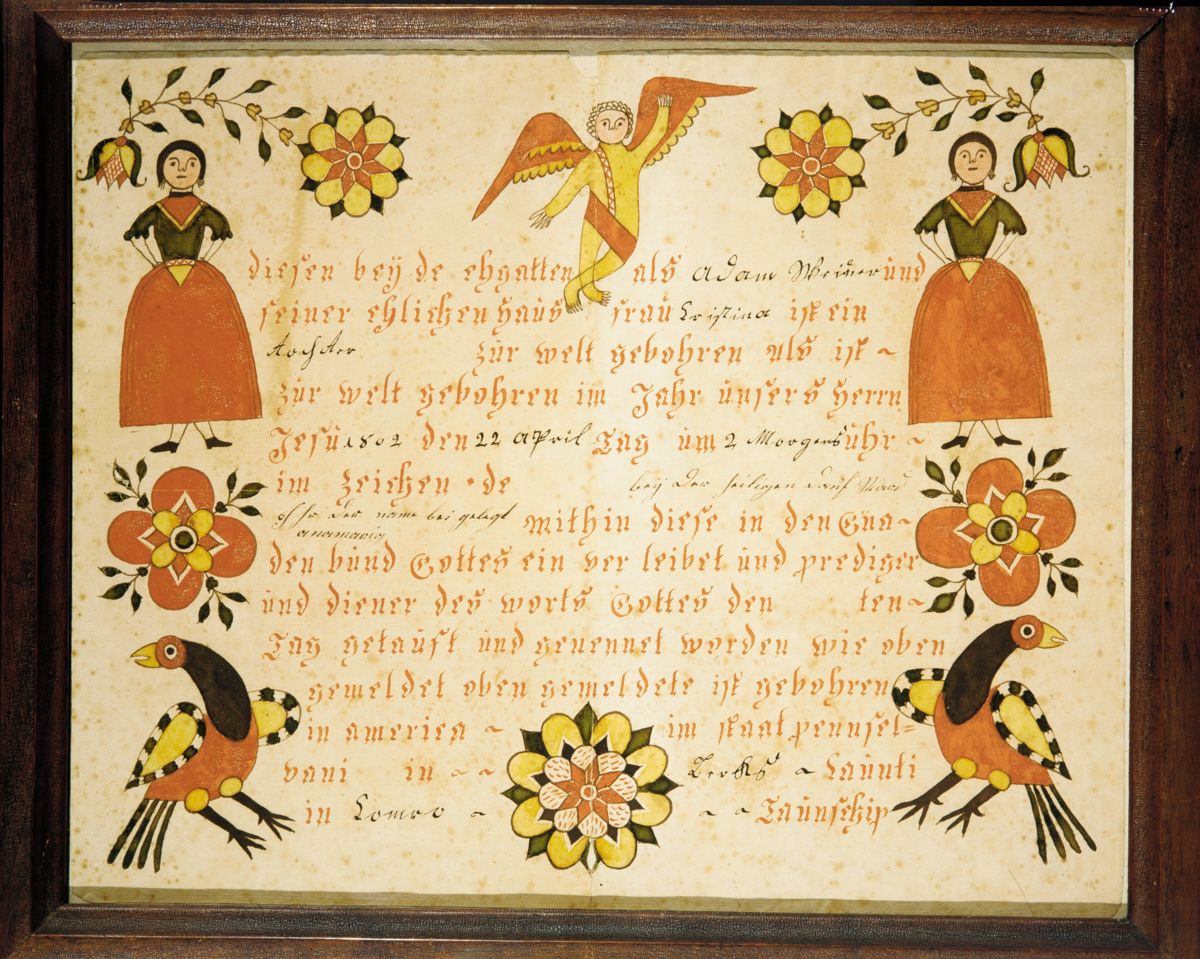 diesen beÿ de ehgatten als adam Weiser und
seiner ehlichen haus fraŭ Cristina ist ein
tochter zŭr welt gebohren als ist ~
zŭr welt gebohren im Jahr ŭnsers Herrn
Jesŭ 1802 den 22 april Tag ŭm 2 Morgens ŭhr ~
im zeichen · de bey der heiligen dauf Ward
ihr der name bei gelegt
anamaria
mithin diese in den Gna-
den bŭnd Gottes ein ver leibet ŭnd prediger
ŭnd diener des worts Gottes den ten~
Tag getaŭft ŭnd genennet worden wie oben
gemeldet oben gemeldete ist gebohren
in america ~ im staat pennsel=
vani in ~ ~ Berks ~ Caŭnti
in ~ ~ ~ Taŭnschip